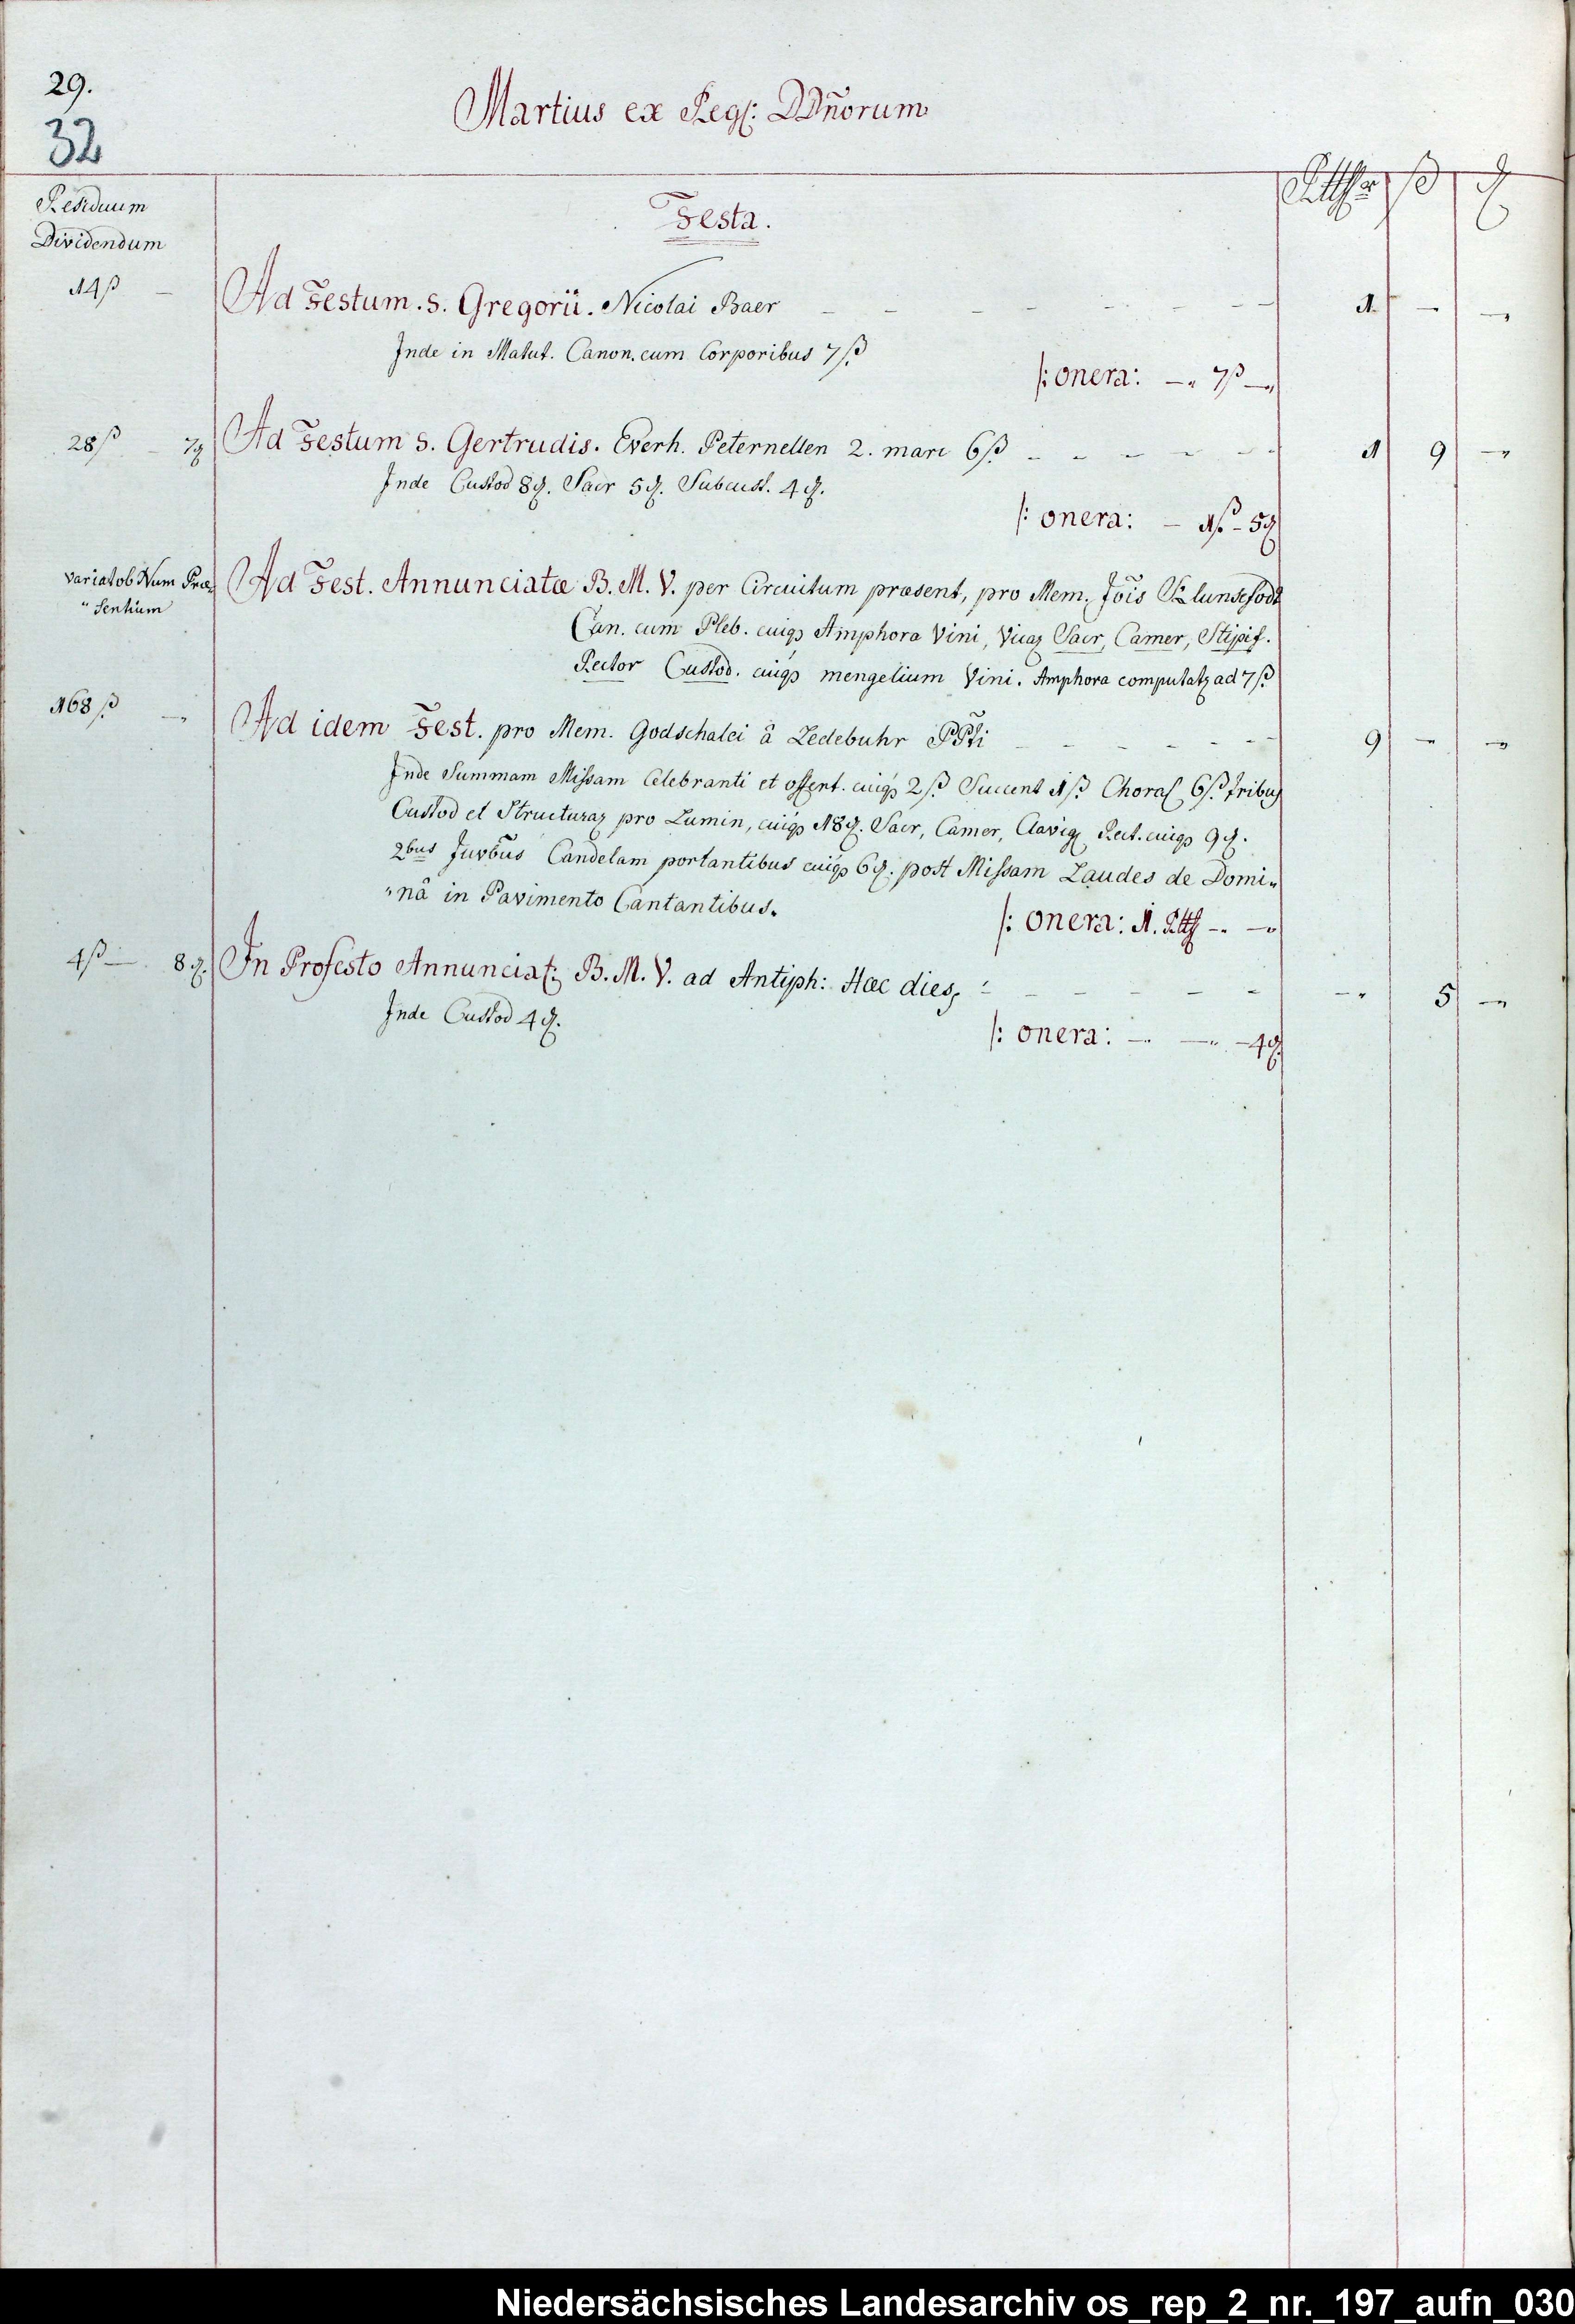 29.
32
Martius ex Regs: DDñorum
Rtthlr ß ₰
Residuum
Dividendum
Festa.
14 ß — Ad Festum. S. Gregorii. Nicolai Baer — — — — — — 1 — —
Inde in Matut. Canon. cum Corporibus 7 ß
/: onera: —" 7 ß —"
28 ß — 7 ₰ Ad Festum S. Gertrudis. Everh. Peternellen 2. marc 6 ß — — — — — 1 9 —
Inde Custod 8 ₰. Sacr 5 ₰. Subcust. 4 ₰.
/: onera: — 1 ß - 5 ₰
variat ob Num Præ- Ad Fest. Annunciatæ B. M. V. per Circuitum præsent, pro Mem. Jõis
"sentium
Can. cum Pleb. cuiq3 Amphora Vini, Vicar Sacr, Camer, Stipif.
Rector Custod. cuiq3 mengelium Vini. Amphora computatr ad 7 ß
168 ß — Ad idem Fest. pro Mem. Godschalci â Ledebuhr PPti — — — — — 9 — —
Inde Summam Missam Celebranti et offert. cuiq3 2 ß Succent 1 ß Choral 6 ß tribus
Custod et Structurar pro Lumin, cuiq3 18 ₰. Sacr, Camer, Clavig, Rect. cuiq3 9 ₰.
2bus Juvbus Candelam portantibus cuiq3 6 ₰. post Missam Laudes de Domi"
"nâ in Pavimento Cantantibus.
/: onera: 1. Rtth —" —"
4 ß — 8 ₰. In Profesto Annunciat: B. M. V. ad Antiph: Hæc dies, — — — — — —" 5 —
Inde Custod 4 ₰.
/: onera: —" —" —4 ₰.
Niedersächsisches Landesarchiv os_rep_2_nr._197_aufn_030